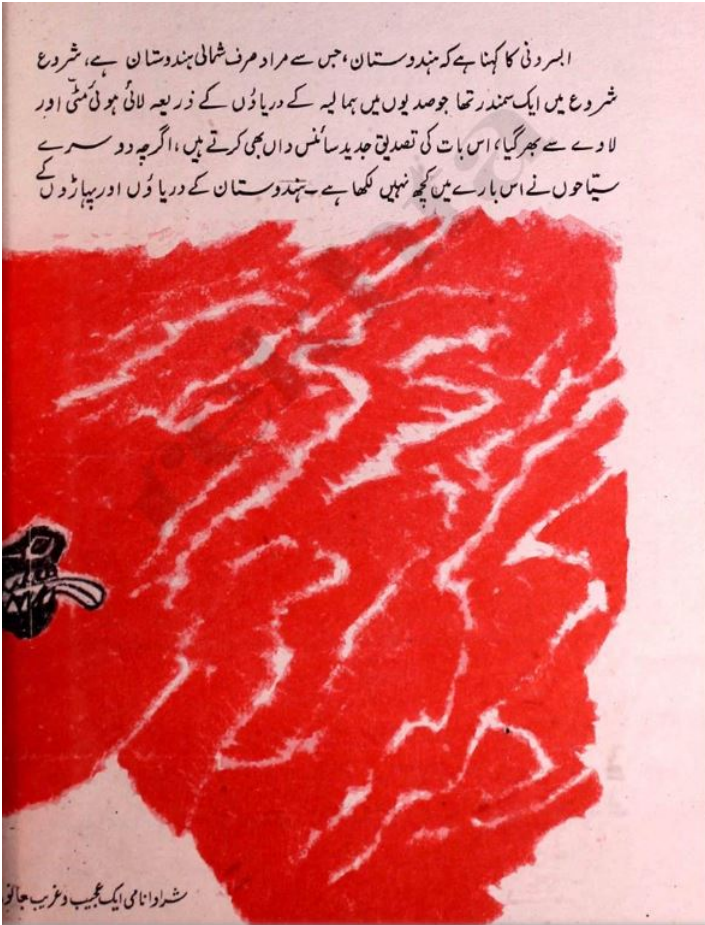 البیرونی کا کہنا ہے کہ ہندوستان، جس سے مراد صرف شمالی ہندوستان ہے، شروع
شروع میں ایک سمندر تھا جو صدیوں میں ہمالیہ کے دریاؤں کے ذریعہ لائی ہوئی مٹی اور
لاوے سے بھر گیا، اس بات کی تصدیق جدید سائنس داں بھی کرتے ہیں، اگرچہ دوسرے
سیّاحوں نے اس بارے میں کچھ نہیں لکھا ہے۔ ہندوستان کے دریاؤں اور پہاڑوں کے
شراوا نامی ایک عجیب و غریب جانو